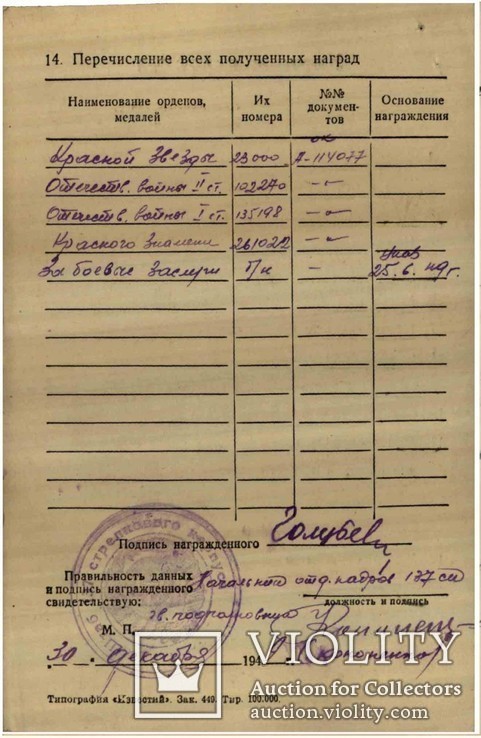 14. Перечисление всех полученных наград
Наименование орденов, медалей
Их номера
№№ документов
Основание награждения
Красной Звезды 23000 А-114077
Отечеств. войны II ст. 102270 —"—
Отечеств. войны I ст. 135198 —"—
Красного Знамени 261022 —"—
За боевые заслуги б/н — указ 25.6. г.
Подпись награжденного Голубев
Правильность данных и подпись награжденного свидетельствую:
Начальник отд. кадров 137 сд
должность и подпись
гв. подполковник
М. П.
30 декабря 194
VIOLITY
Auction for Collectors
auction.violity.com
Типография «Известий». Зак. 449. Тир. 100.000.